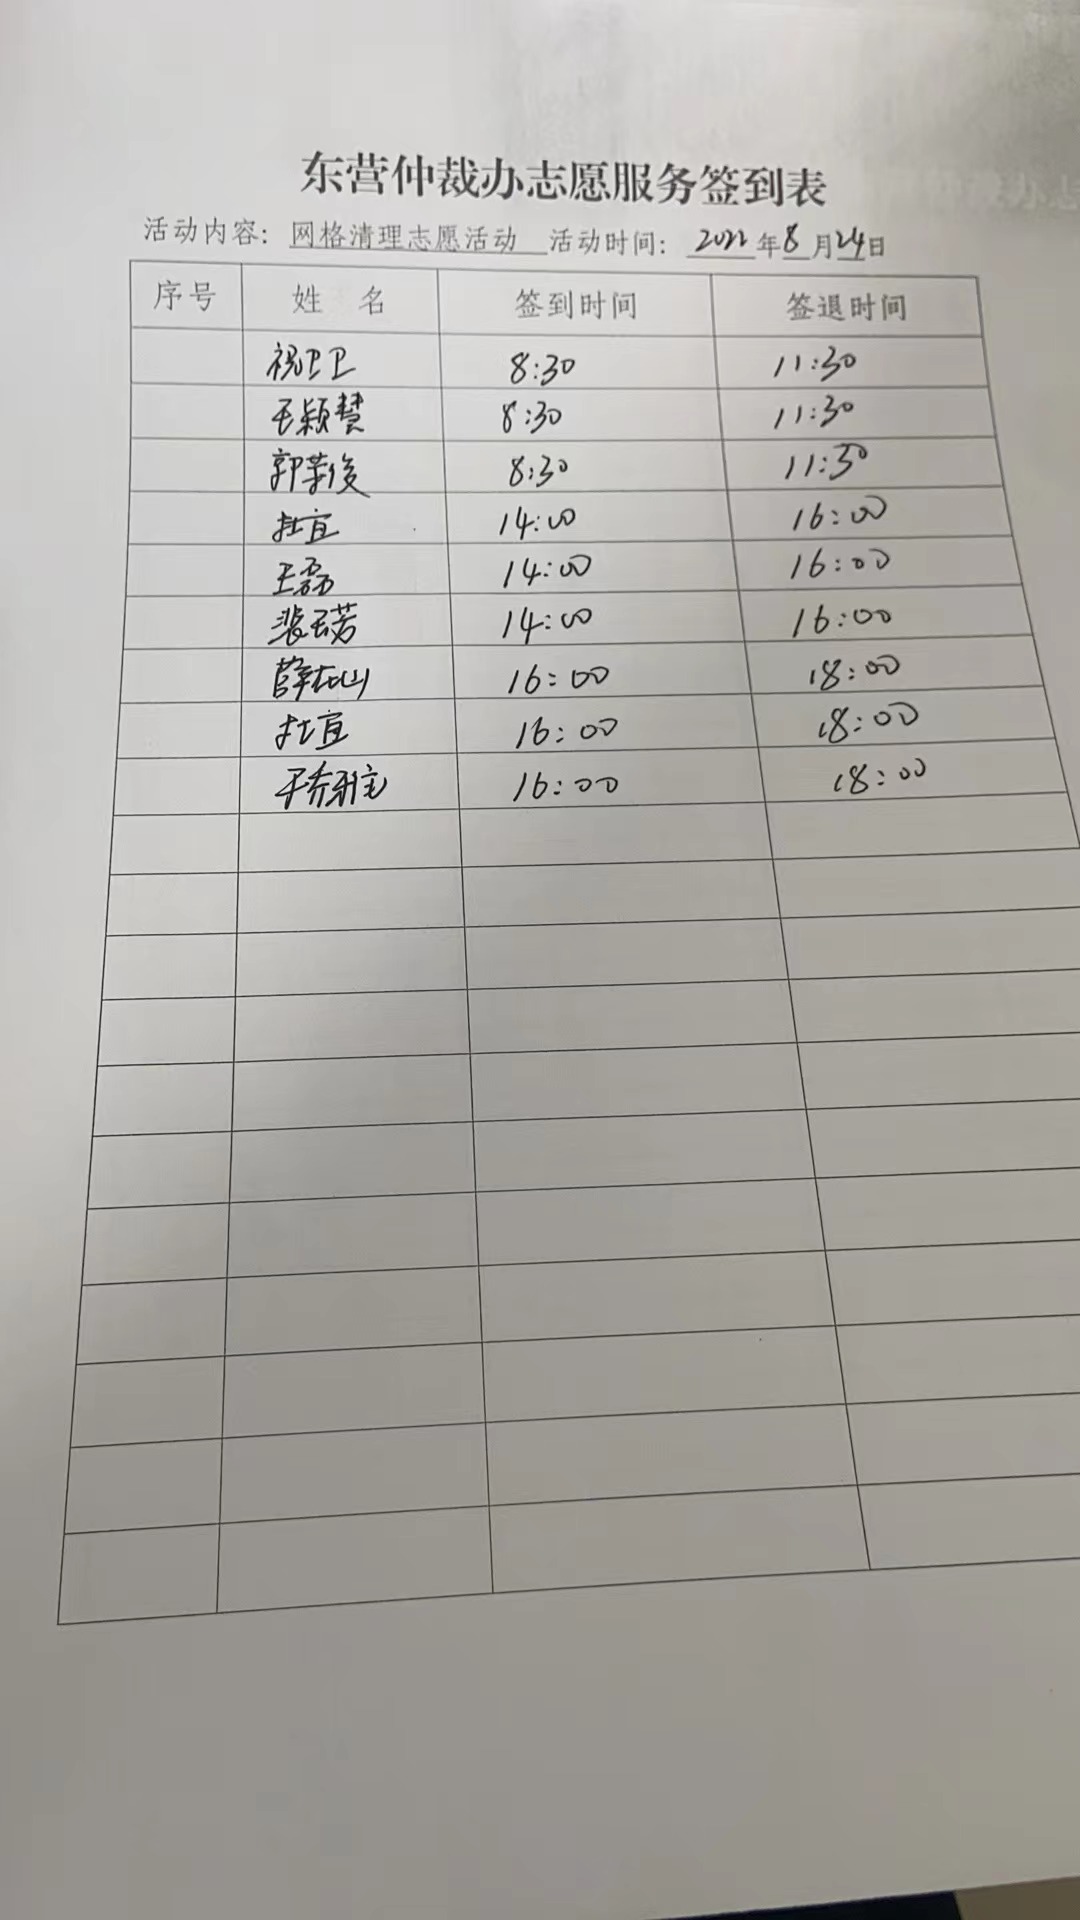 东营仲裁办志愿服务签到表
活动内容：网格清理志愿活动 活动时间：2022年8月24日
序号 姓 名 签到时间 签退时间
祝卫卫 8:30 11:30
王颖慧 8:30 11:30
郭荣俊 8:30 11:30
杜宜 14:00 16:00
王磊 14:00 16:00
裴玉若 14:00 16:00
薛松山 16:00 18:00
杜宜 16:00 18:00
16:00 18:00